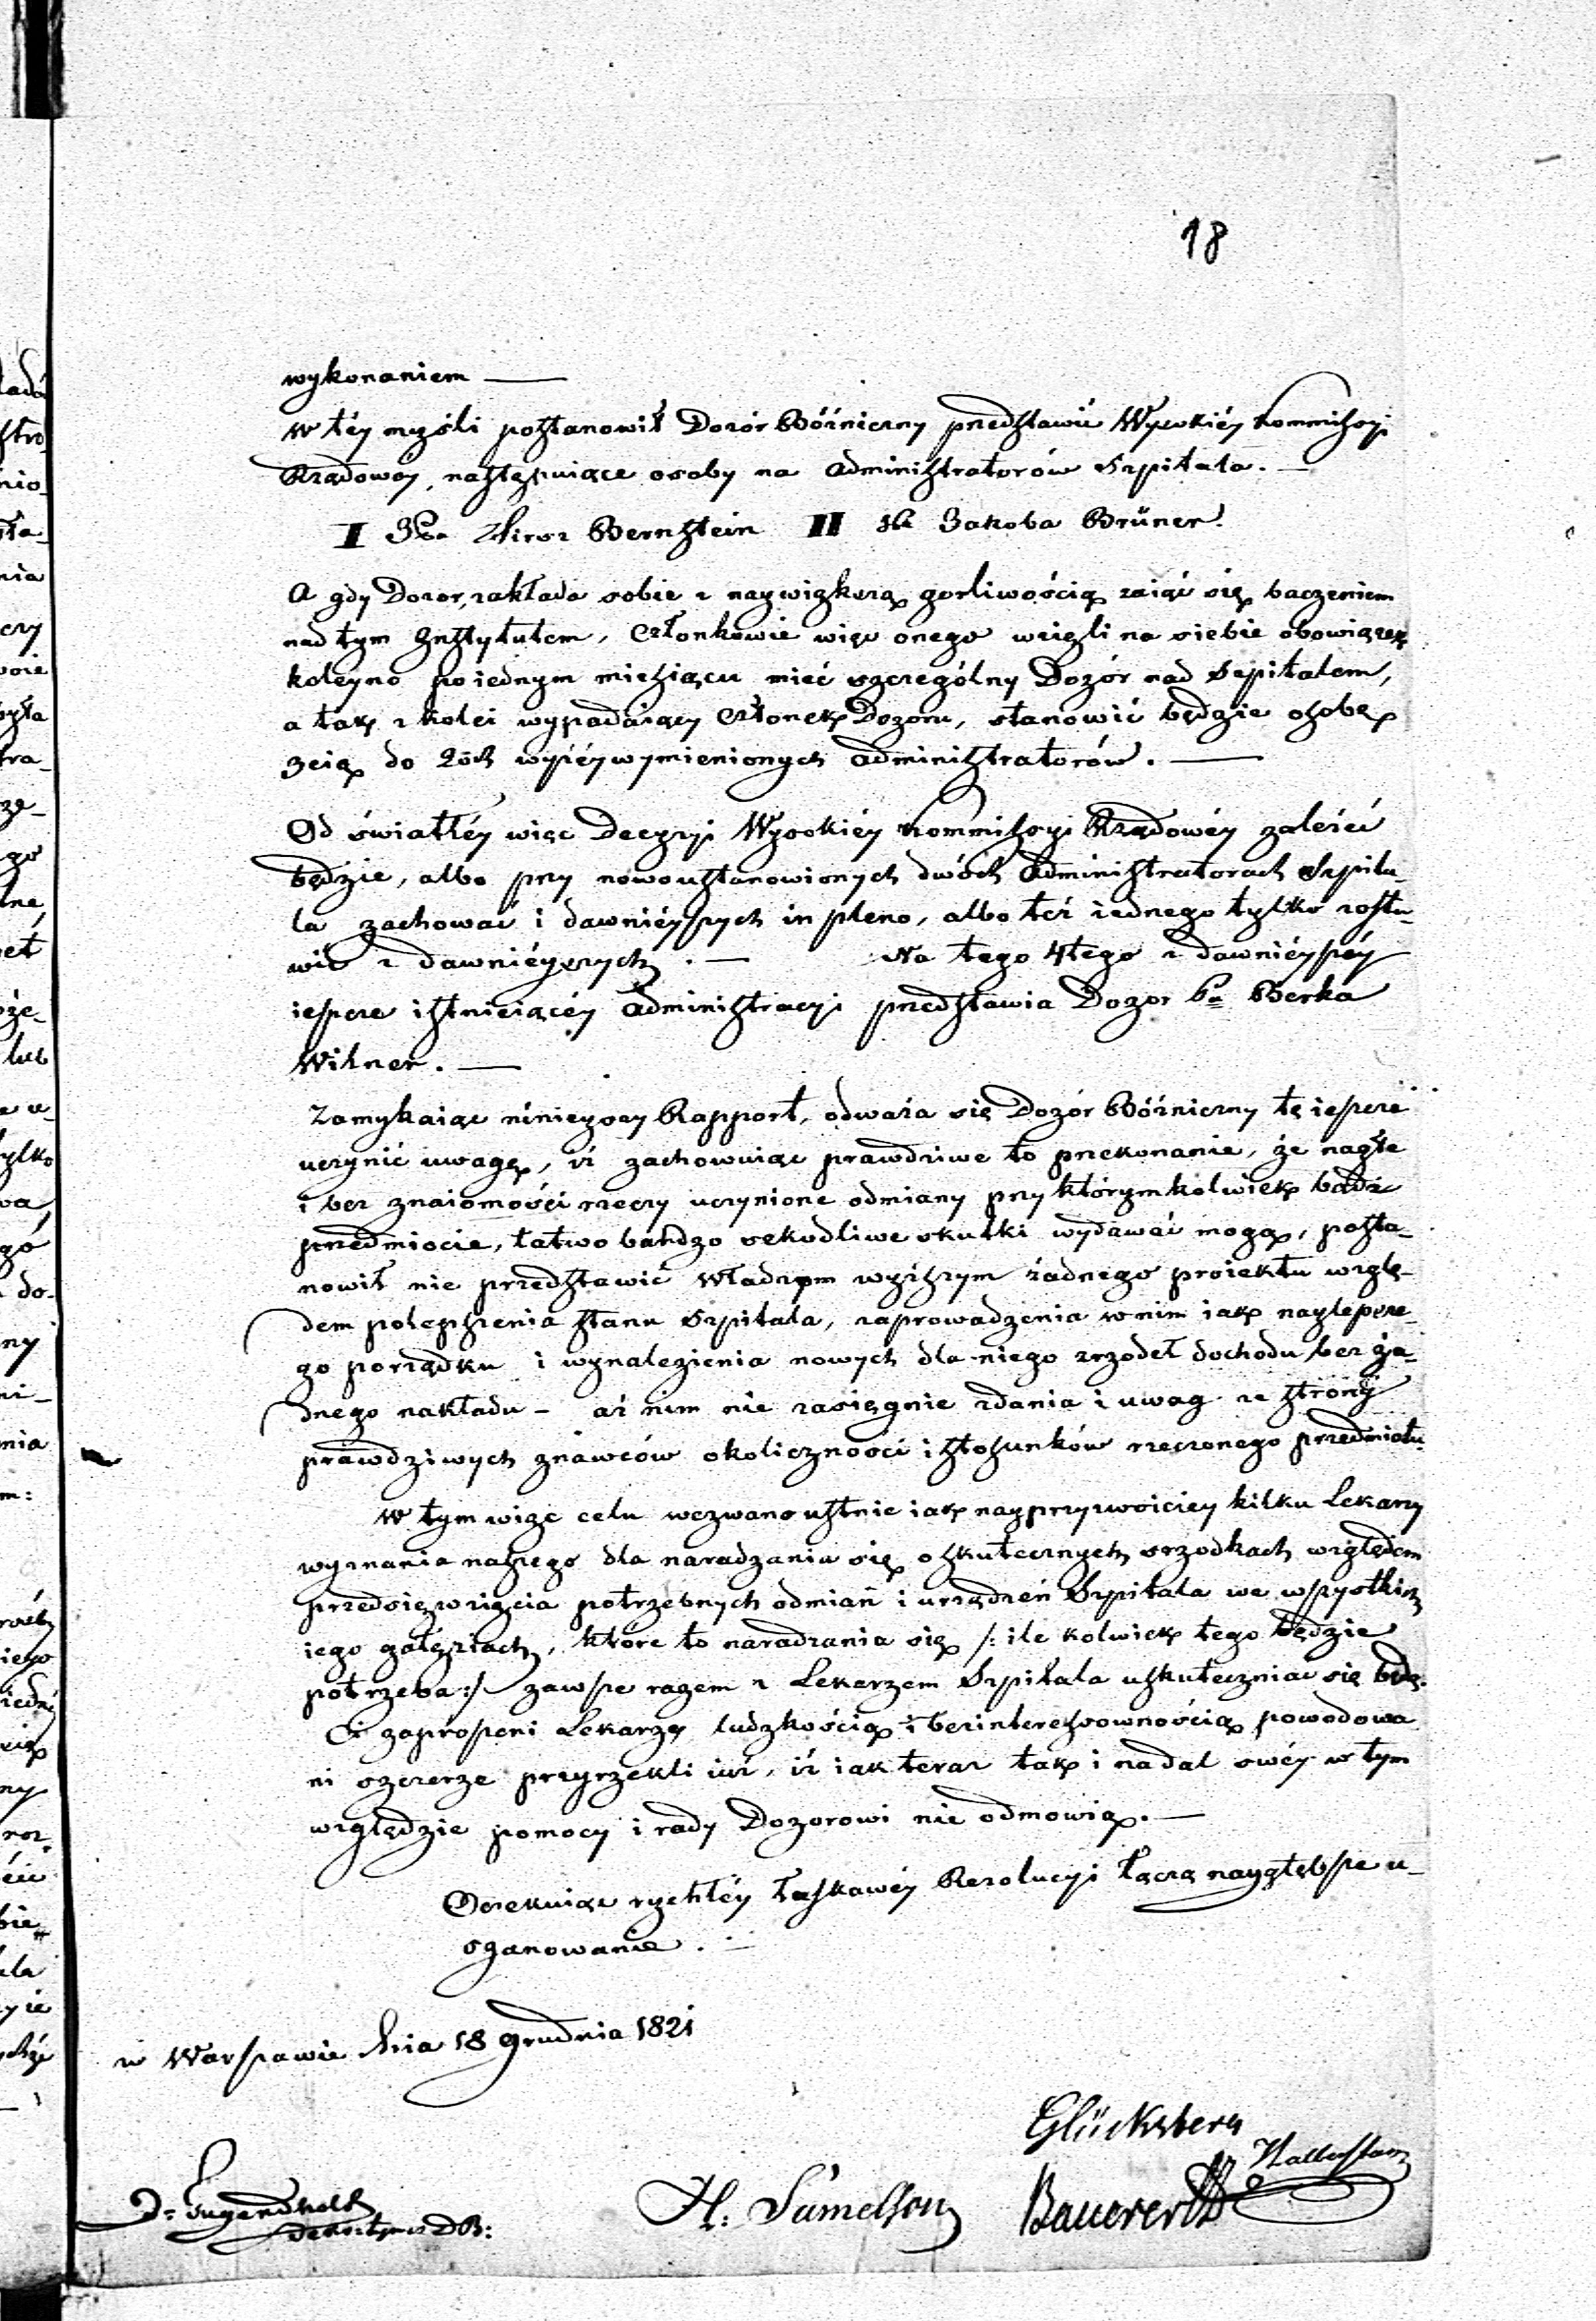 18
wykonaniem —
W téy myśli postanowił Dozór Bóżniczny przedstawić Wysokiéy Kommissyi
Rządowéy, następuiące osoby na Administratorów Szpitala. —
I Hirsz Bernstein II Jakoba Brüner.
A gdy Dozor, zakłada sobie z naywiększą gorliwością zaiąć się baczeniem
nad tym Instytutem, Członkowie więc onego wzięli na siebie obowiązek
koleyno po iednym miesiącu mieć szczególny Dozór nad Szpitalem,
a tak z kolei wypadaiący Członek Dozoru, stanowić będzie osobę
3cią do 2óch wyżéy wymienionych Administratorów. —
Od światłéy więc Decyzyi Wysokiéy Kommissyi Rządowéy zależeć
będzie, albo przy nowoustanowionych dwóch Administratorach Szpita-
la zachować i dawniéyszych in pleno, albo też iednego tylko zosta-
wić z dawniéyszych. — Na tego 4tego z dawniéyszéy
ieszcze istnieiącéy Administracyi przedstawia Dozor Pa Berka
Wilner. —
Zamykaiąc ninieyszy Rapport, odważa się Dozór Bóżniczny tę ieszcze
uczynić uwagę, iż zachowuiąc prawdziwe to przekonanie, że nagłe
i bez znaiomości rzeczy uczynione odmiany przy którymkolwiek bądź
przedmiocie, łatwo bardzo szkodliwe skutki wydawać mogą, posta-
nowił nie przedstawić Władzom wyższym żadnego proiektu wzglę-
dem polepszenia stanu Szpitala, zaprowadzenia w nim iak naylepsze-
go porządku i wynalezienia nowych dla niego zrzodeł dochodu bez ża-
dnego nakładu - aż nim nie zasięgnie zdania i uwag ze strony
prawdziwych znawców okoliczności i stosunków rzeczonego przedmiotu.
W tym więc celu wezwano ustnie iak nayprzyzwoiciey kilku Lekarzy
wyznania naszego dla naradzania się o skutecznych srzodkach względem
przedsięwzięcia potrzebnych odmian i urządzeń Szpitala we wszystkich
iego gałęziach, które to naradzania się /: ile kolwiek tego będzie
potrzeba :/ zawsze razem z Lekarzem Szpitala uskuteczniać się będą.
Ci zaproszeni Lekarze ludzkością i bezinteressownością powodowa
ni szczerze przyrzekli iuż, iż iak teraz tak i nadal swéy w tym
względzie pomocy i rady Dozorowi nie odmowią. —
Oczekuiąc rychłéy łaskawéy Rezolucyi łączą naygłębsze u-
szanowanie. —
w Warszawie dnia 18 Grudnia 1821
Glücksberg
Hallerstam
Dr Jugendhold
H: Samelson
Bauerertz
DB: